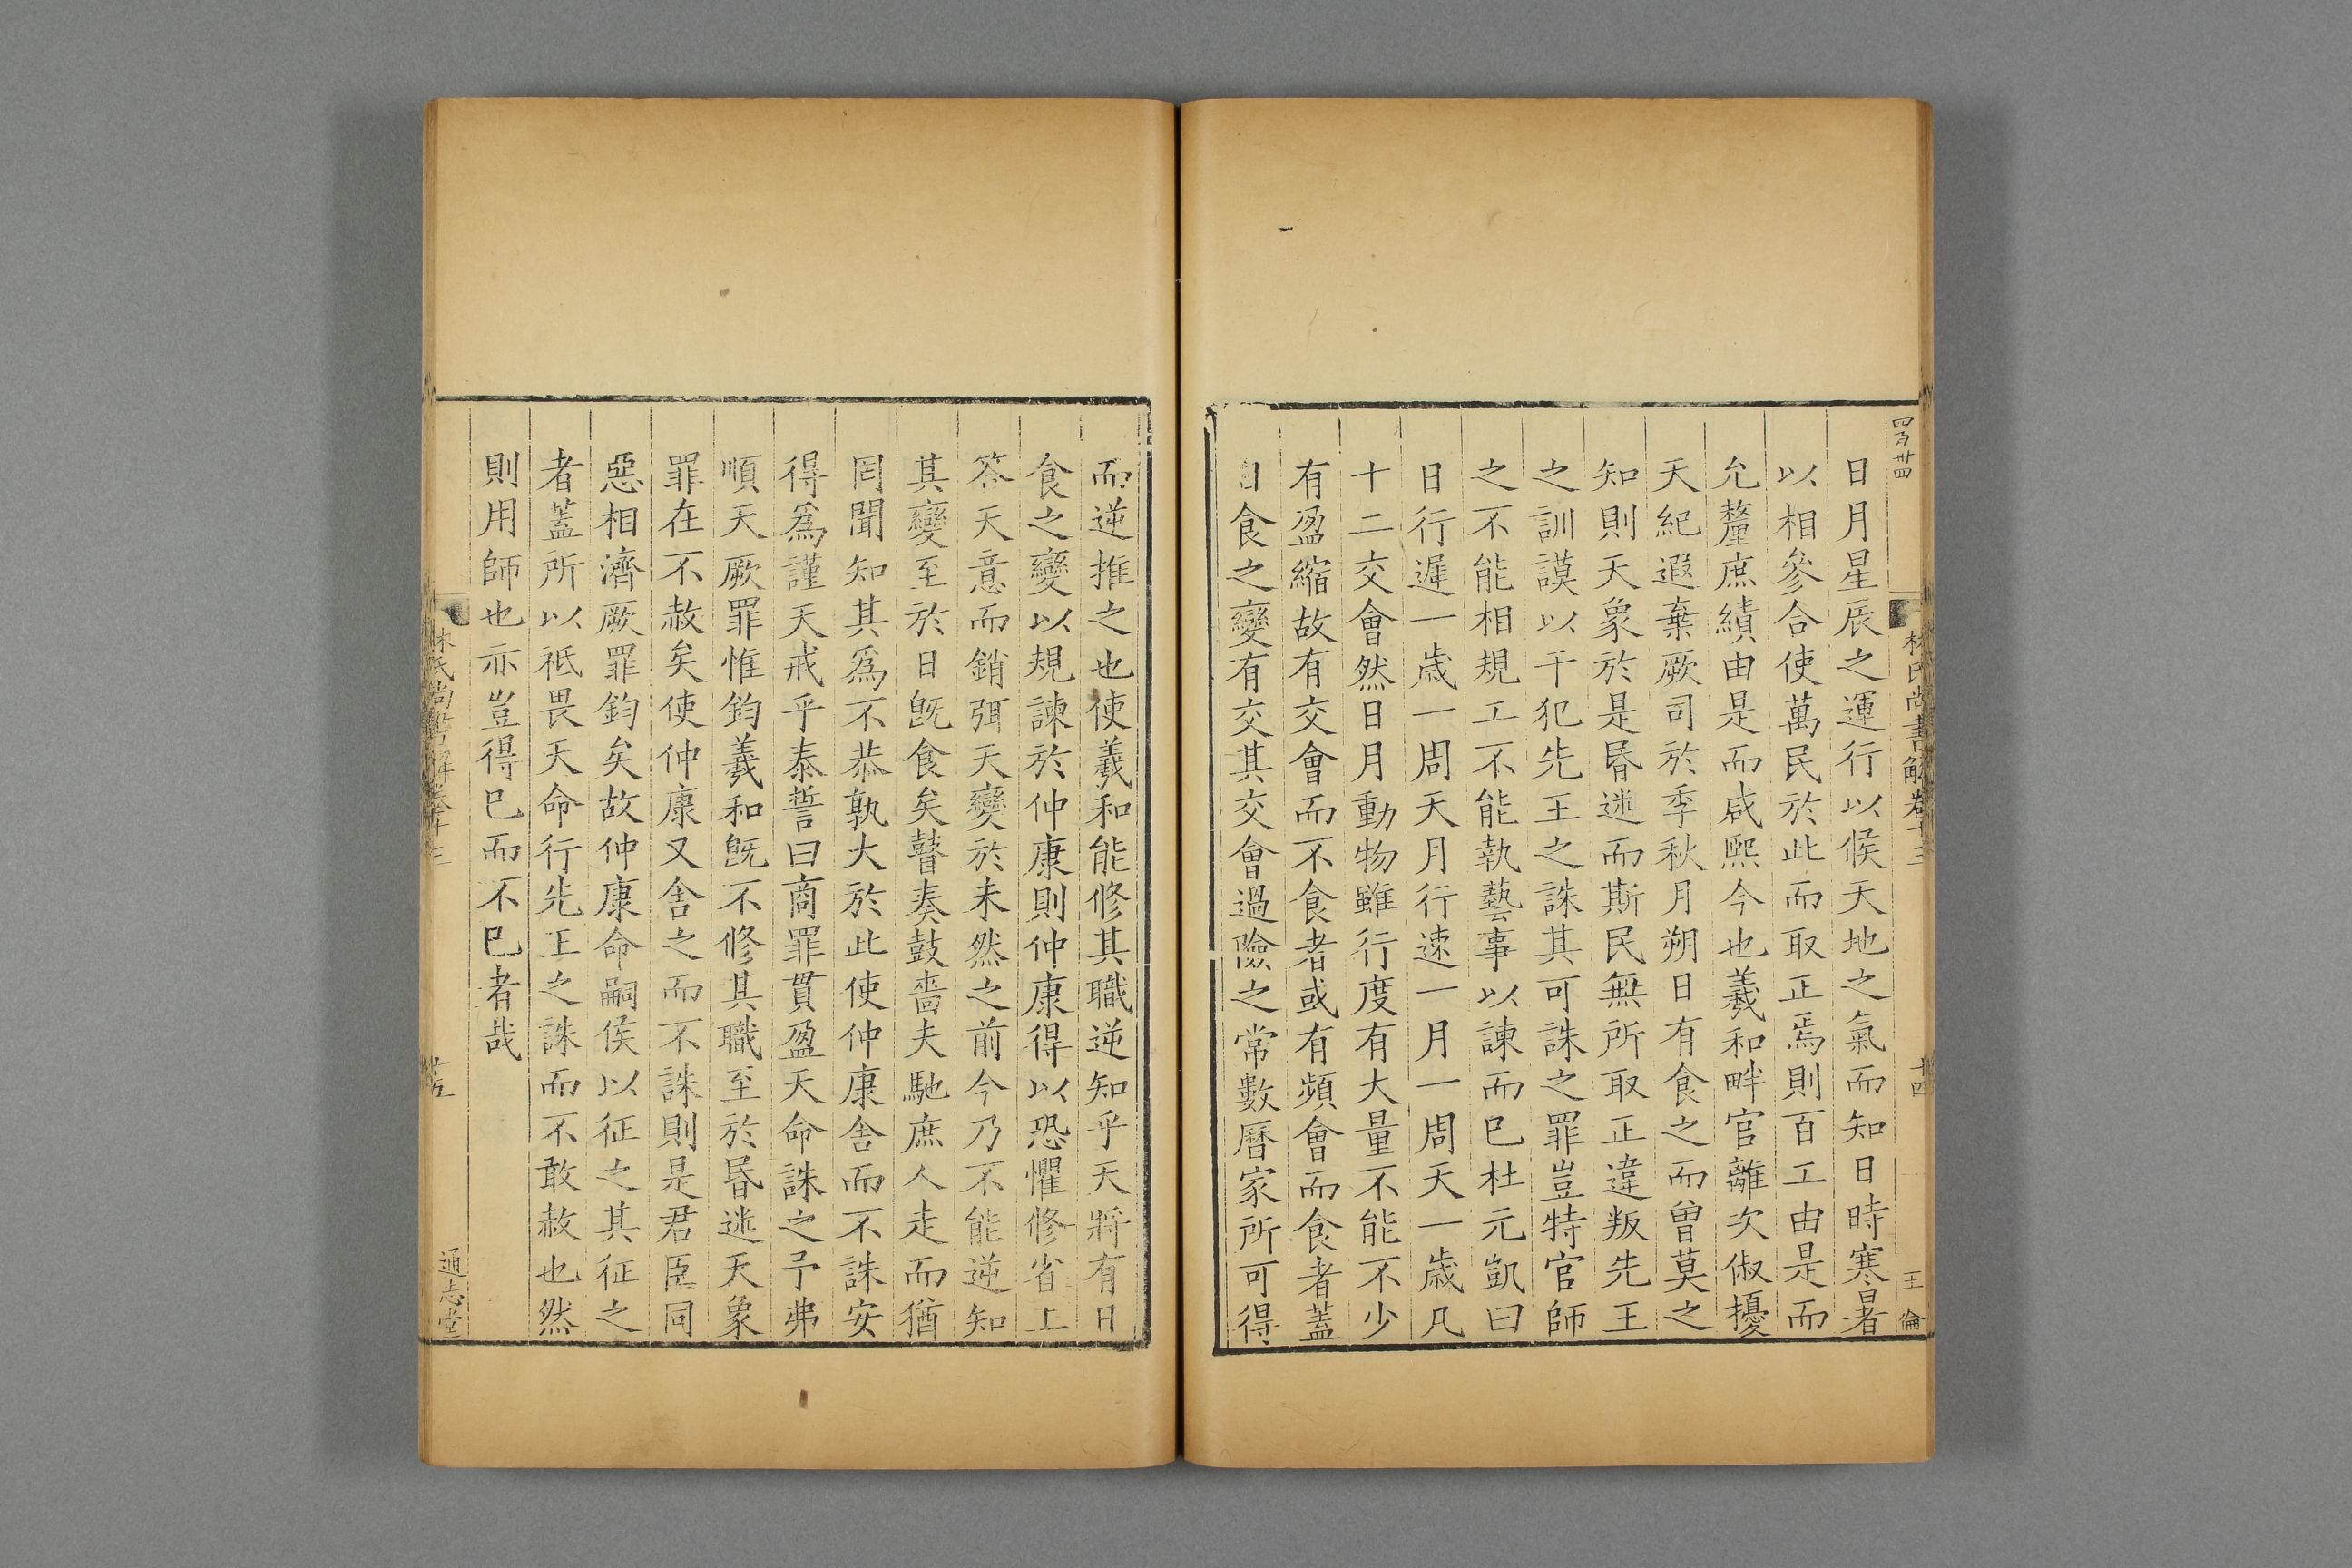 四百卅四
林氏尚書解卷十三
十四
王倫
日月星辰之運行以候天地之氣而知日時寒暑
以相參合使萬民於此而取正焉則百工由是而
允釐庶績由是而咸熙今也羲和畔官離次俶擾
天紀遐棄厥司於季秋月朔日有食之而曾莫之
知則天象於是昬迷而斯民無所取正違叛先王
之訓謨以干犯先王之誅其可誅之罪豈特官師
之不能相規工不能執藝事以諫而已杜元凱曰
日行遲一歲一周天月行速一月一周天一歲凡
十二交會然日月動物雖行度有大量不能不少
有盈縮故有交會而不食者或有頻會而食者蓋
日食之變有交其交會過險之常數曆家所可得
而逆推之也使羲和能修其職逆知乎天將有日
食之變以規諫於仲康則仲康得以恐懼修省上
答天意而銷弭天變於未然之前今乃不能逆知
其變至於日旣食矣瞽奏鼓嗇夫馳庶人走而猶
罔聞知其爲不恭孰大於此使仲康舍而不誅安
得爲謹天戒乎泰誓曰商罪貫盈天命誅之予弗
順天厥罪惟鈞羲和旣不修其職至於昬迷天象
罪在不赦矣使仲康又舍之而不誅則是君臣同
惡相濟厥罪鈞矣故仲康命嗣侯以征之其征之
者蓋所以祗畏天命行先王之誅而不敢赦也然
則用師也亦豈得已而不已者哉
林氏尚書解卷十三
十五
通志堂